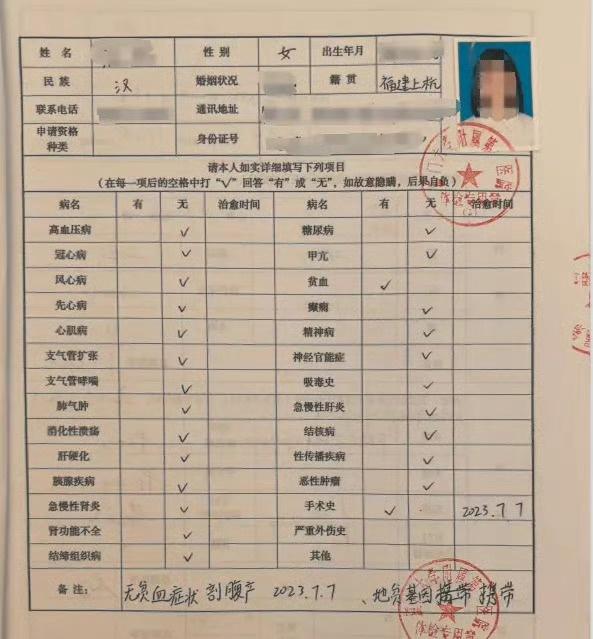 姓 名 性 别 女 出生年月
民 族 汉 婚姻状况 籍 贯 福建上杭
联系电话 通讯地址
申请资格种类 身份证号
请本人如实详细填写下列项目
(在每一项后的空格中打“√”回答“有”或“无”，如故意隐瞒，后果自负)
病名 有 无 治愈时间 病名 有 无 治愈时间
高血压病 ✓ 糖尿病 ✓
冠心病 ✓ 甲亢 ✓
风心病 ✓ 贫血 ✓
先心病 ✓ 癫痫 ✓
心肌病 ✓ 精神病 ✓
支气管扩张 ✓ 神经官能症 ✓
支气管哮喘 ✓ 吸毒史 ✓
肺气肿 ✓ 急慢性肝炎 ✓
消化性溃疡 ✓ 结核病 ✓
肝硬化 ✓ 性传播疾病 ✓
胰腺疾病 ✓ 恶性肿瘤 ✓
急慢性肾炎 ✓ 手术史 ✓ 2023.7.7
肾功能不全 ✓ 严重外伤史
结缔组织病 ✓ 其他
备 注： 无贫血症状 剖腹产 2023.7.7 、地贫基因携带 携带